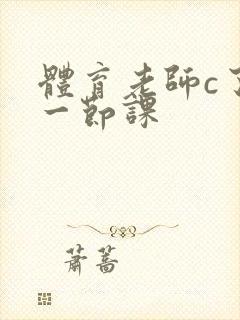 體育老師c了
一節課
蕭蒿